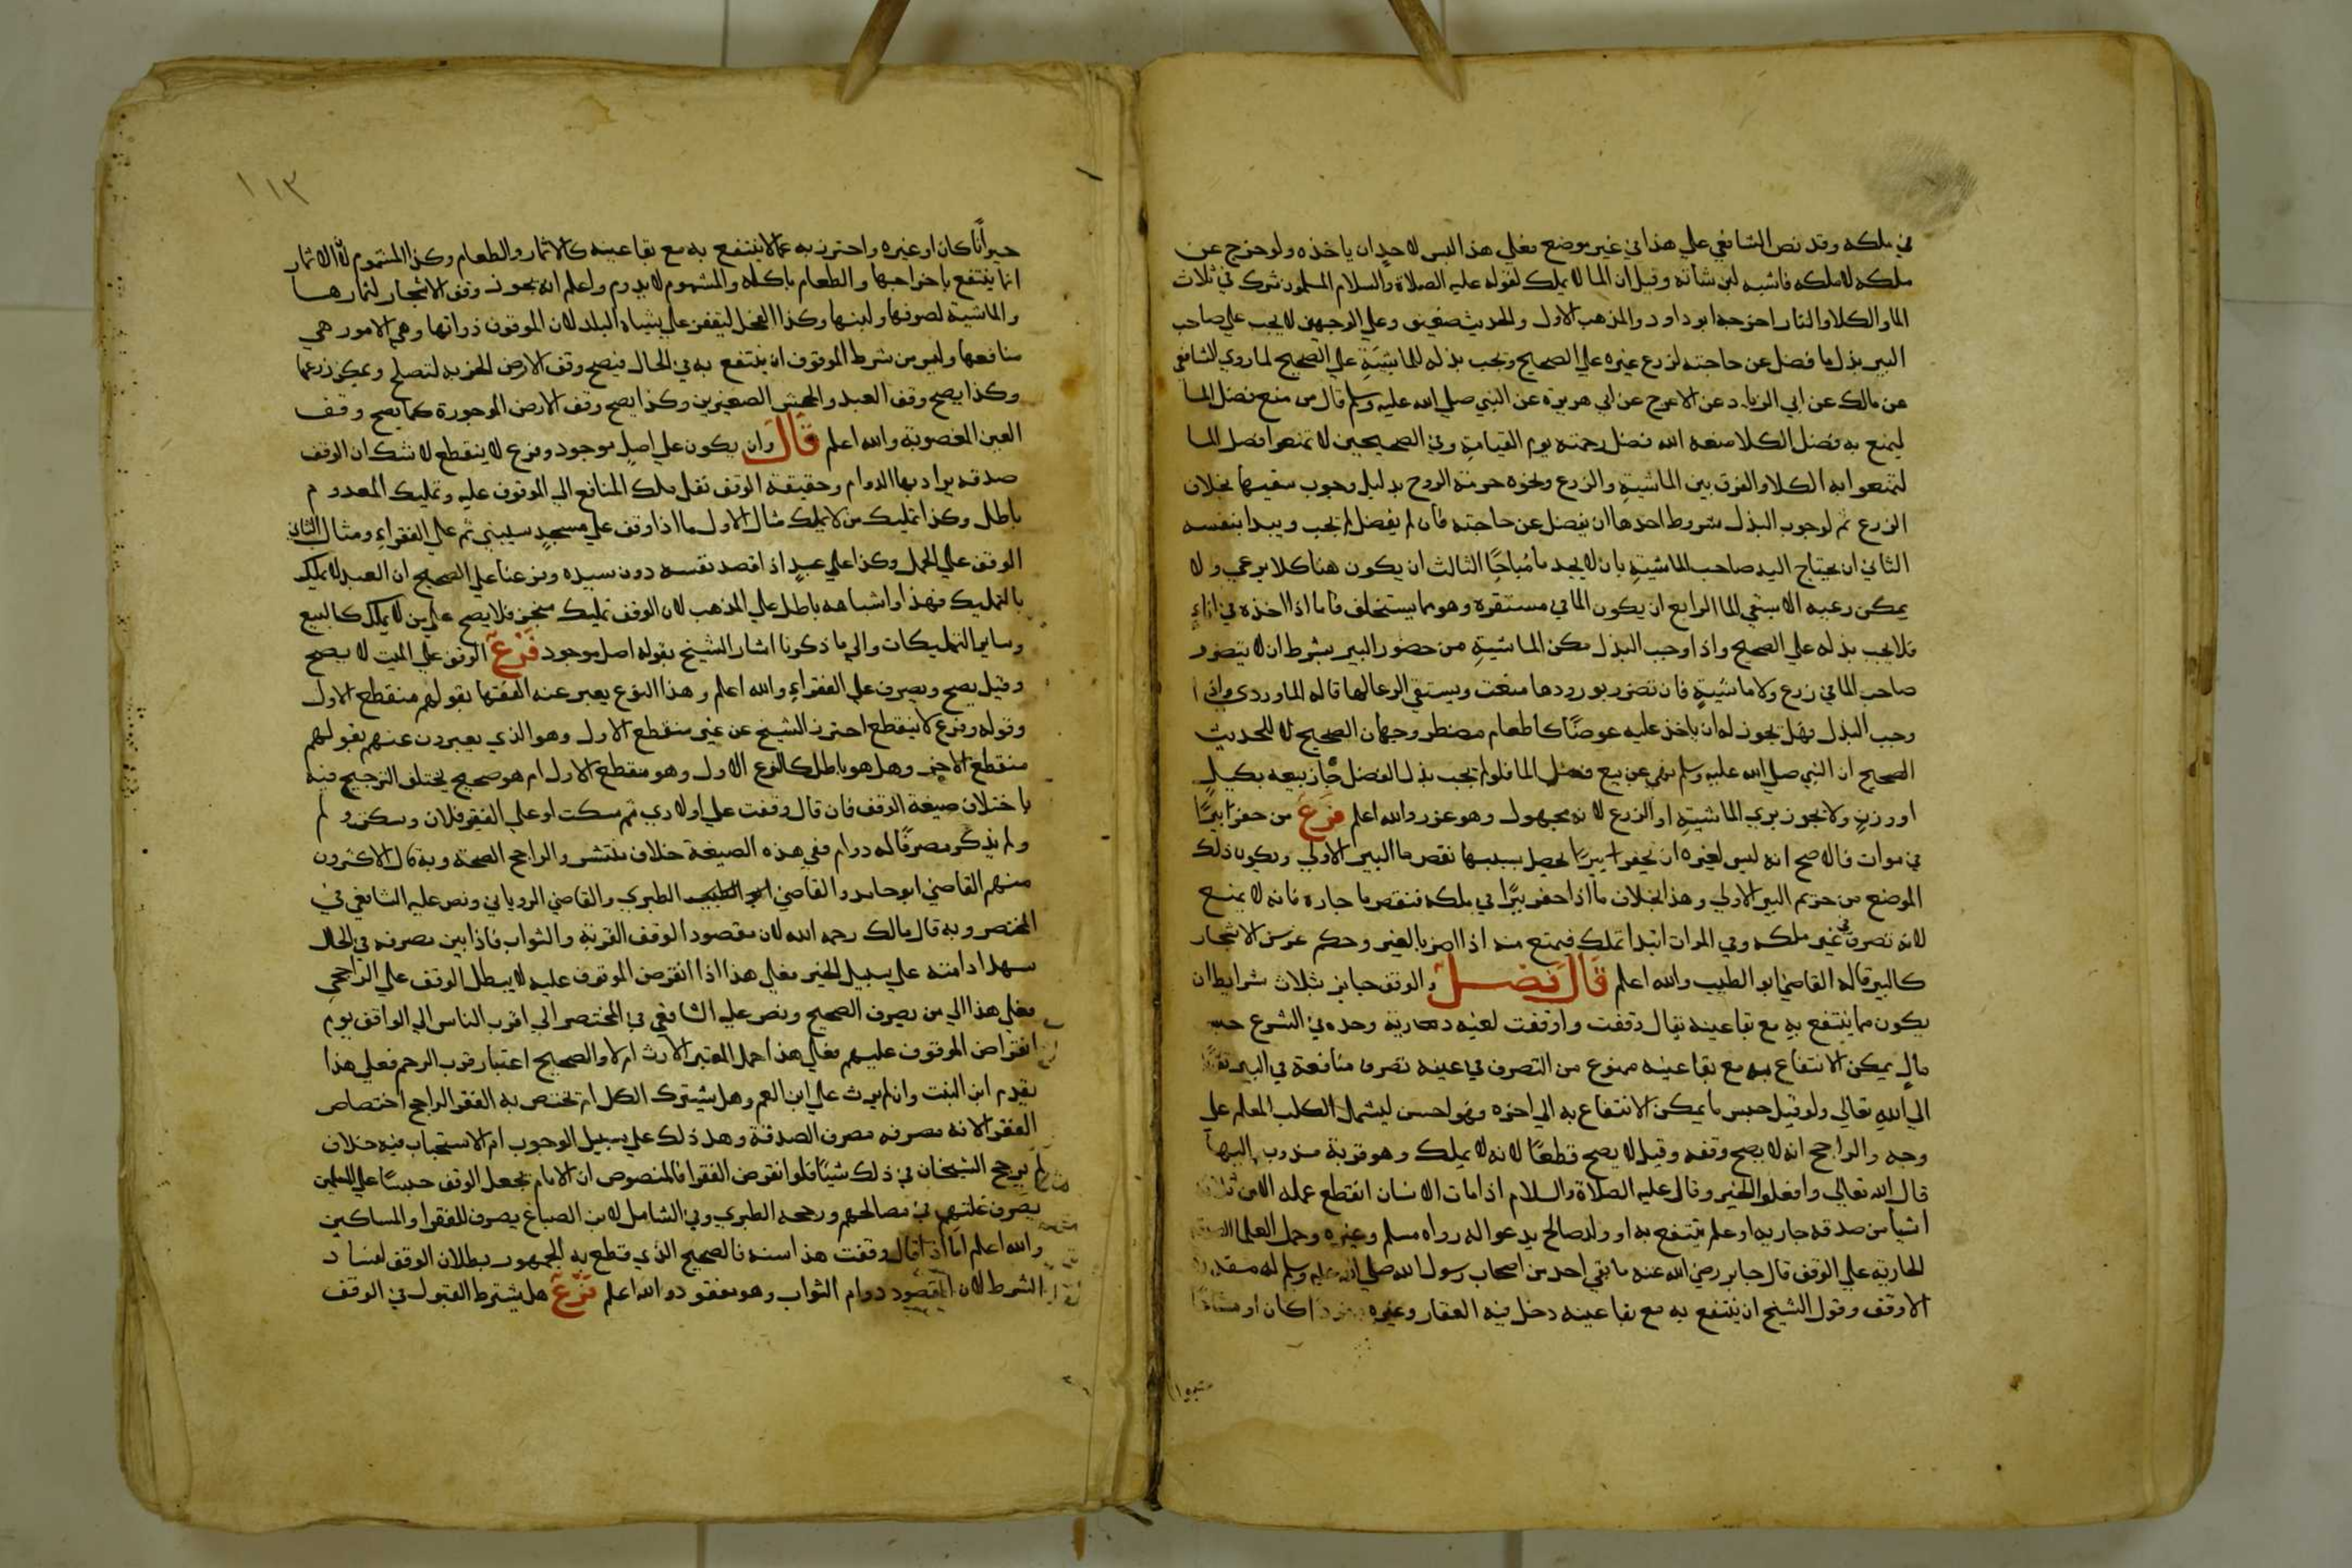 في ملكه وقد نص الشافعي علي هذا في غير موضع فعلي هذا ليس لاحدٍ ان ياخذه ولو خرج عن
ملكه لانه ملكه فاشبه لبن شاته وقيل ان الما لا يملك لقوله عليه الصلاة والسلام المسلمون شرك في ثلاث
الما والكلا والنار اخرجه ابو داود والمذهب الاول والحديث ضعيف وعلي الوجهين لا يجب علي صاحب
البير بذل ما فضل عن حاجته لزرع غيره علي الصحيح وتجب بذله للماشيَةِ علي الصحيح لما روي الشافعي
عن مالك عن ابي الزناد عن الاعرج عن ابي هريرة عن النبي صلي الله عليه وسلم قال من منع فضل الما
ليمنع به فضل الكلا منعه الله فضل رحمته يوم القيامةِ وفي الصحيحين لا تمنعوا فضل الما
لتمنعوا به الكلا والفرق بين الماشيةِ والزرع ونحوه حرمة الروح بدليل وجوب سقيها بخلاف
الزرع ثم لوجوب البذل شروط احدها ان يفضل عن حاجته فان لم يفضل لم تجب ويبدا بنفسه
الثاني ان يحتاج اليه صاحب الماشيةِ بان لا يجد ما مُباحًا الثالث ان يكون هنا كلا يرعي ولا
يمكن رعيه الا بسقي الما الرابع ان يكون الما في مستقره وهو مما يستخلف فاما اذا اخذه في اناءٍ
فلا يجب بذله علي الصحيح واذا وجب البذل مكن الماشيةِ من حضور البير بشرط ان لا يتضرر
صاحب الما في زرع ولا ماشيةٍ فان تضرر بورودها منعت ويستقي الرعا لها قاله الماوردي واذا
وجب البذل فهل يجوز له ان ياخذ عليه عوضًا كاطعام مضطر وجهان الصحيح لا للحديث
الصحيح ان النبي صلي الله عليه وسلم نهي عن بيع فضل الما فلو لم تجب بذل الفضل جاز بيعه بكيلٍ
او وزنٍ ولا يجوز بري الماشيةِ او الزرع لانه مجهول وهو غرر والله اعلم فَرْعٌ من حفر بيرًا
في موات فالاصح انه ليس لغيره ان يحفر بيرًا يحصل بسببها نقص ما البير الاولي ويكون ذلك
الموضع من حريم البير الاولي وهذا بخلاف ما اذا حفر بيرًا في ملكه فنقص ما جاره فانه لا يمنع
لانه تصرف في عين ملكه وفي الموات ابتدا تملك فيمنع منه اذا اضر بالغير وحكم غرس الاشجار
كالبير قاله القاضي ابو الطيب والله اعلم قَالَ فَصْـــلٌ والوقف جايز بثلاث شرايط ان
يكون مما ينتفع بهِ مع بقا عينه يقال وقفت واوقفت لغيه وحده في الشرع حبس
مالٍ يمكن الانتفاع به مع بقا عينه ممنوع من التصرف في عينه تصرف منافعه في البر تقربًا
الي اللهِ تعالي ولو قيل حبس ما يمكن الانتفاع به الي اخره فهو احسن ليشمل الكلب المعلم علي
وجه والراجح انه لا يصح وقفه وقيل لا يصح قطعًا لانه لا يملك وهو قربة مندوب اليها
قال الله تعالي وافعلوا الخير وقال عليه الصلاة والسلام اذا مات الانسان انقطع عمله الا من ثلاث
اشيا من صدقه جاريه او علم ينتفع به او ولد صالح يدعوا له رواه مسلم وغيره وحمل العلما الصدقه
الجاريه علي الوقف قال جابر رضي الله عنه ما بقي احد من اصحاب رسول الله صلي الله عليه وسلم له مقدره
الا وقف وقول الشيخ ان ينتفع به مع بقا عينه دخل فيه العقار وغيره مفردًا كان او مشاعًا
١١٣
حيوانًا كان او غيره واحترز به عما لا ينتفع به مع بقا عينه كالاثمار والطعام وكذا المشموم لان الاثمار
انما ينتفع باخراجها والطعام باكله والمشموم لا يدوم واعلم انه يجوز وقف الاشجار لثمارها
والماشية لصوفها ولبنها وكذا الفحل ليقفز علي شياه البلد لان الموقوف ذواتها وهي الامور هي
منافعها وليس من شرط الموقوف ان ينتفع به في الحال فيصح وقف الارض الخربه لتصلح ويمكن زرعها
وكذا يصح وقف العبد والجحش الصغيرين وكذا يصح وقف الارض الموجورة كما يصح وقف
العين المغصوبة والله اعلم قَالَ وان يكون علي اصلٍ موجود وفرع لا ينقطع لا شك ان الوقف
صدقه يراد بها الدوام وحقيقة الوقف نقل ملك المنافع الي الموقوف عليه وتمليك المعدوم
باطل وكذا تمليك من لا يملك مثال الاول ما اذا وقف علي مسجدٍ سيبني ثم علي الفقراءِ ومثال الثاني
الوقف علي الحمل وكذا علي عبدٍ اذا قصد نفسه دون سيده وفرعنا علي الصحيح ان العبد لا يملك
بالتمليك فهذا واشباهه باطل علي المذهب لان الوقف تمليك منجز فلا يصح علي من لا يملك كالبيع
وساير التمليكات والي ما ذكرنا اشار الشيخ بقوله اصل موجود فَرْعٌ الوقف علي الميت لا يصح
وقيل يصح ويصرف علي الفقراءِ والله اعلم وهذا النوع يعبر عنه الفقها بقولهم منقطع الاول
وقوله وفرع لا ينقطع احترز الشيخ عن غير منقطع الاول وهو الذي يعبرون عنهم بقولهم
منقطع الاخر وهل هو باطل كالنوع الاول وهو منقطع الاول ام هو صحيح يختلف الترجيح فيه
باختلاف صيغة الوقف فان قال وقفت علي اولادي ثم سكت او علي الفقير فلان وسكت ولم
ولم يذكر مصرفًا له دوام ففي هذه الصيغة خلاف منتشر والراجح الصحة وبه قال الاكثرون
منهم القاضي ابو حامد والقاضي ابو الطيب الطبري والقاضي الروياني ونص عليه الشافعي في
المختصر وبه قال مالك رحمه الله لان مقصود الوقف القربة والثواب فاذا بين مصرفه في الحال
سهل ادامته علي سبيل الخير فعلي هذا اذا انقرض الموقوف عليه لا يبطل الوقف علي الراجح
فعلي هذا الي من يصرف الصحيح ونص عليه الشافعي في المختصر الي اقرب الناس الي الواقف يوم
انقراض الموقوف عليهم فعلي هذا هل المعتبر الارث ام لا والصحيح اعتبار قرب الرحم فعلي هذا
يقدم ابن البنت وان لم يرث علي ابن العم وهل يشترك الكل ام تختص به الفقر الراجح اختصاص
الفقر لانه مصرفه مصرف الصدقة وهل ذلك علي سبيل الوجوب ام الاستحباب فيه خلاف
لم يرجح الشيخان في ذلك شيئا فلو انقرض الفقرا فالمنصوص ان الامام يجعل الوقف حبسًا علي المسلمين
يصرف غلتهم في مصالحهم ورجحه الطبري وفي الشامل لابن الصباغ يصرف للفقرا والمساكين
والله اعلم اما اذا قال وقفت هذا سنه فالصحيح الذي قطع به الجمهور بطلان الوقف لفساد
الشرط لان المقصود دوام الثواب وهو مفقود والله اعلم فَرْعٌ هل يشترط القبول في الوقف